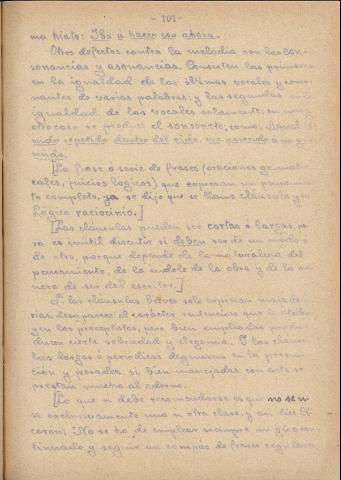 - 101 -
ma hiato: Iba á hacer eso ahora.
Otros defectos contra la melodia son las con-
sonancias y asonancias. Consisten las primeras
en la igualdad de las últimas vocales y conso-
nantes de varias palabras; y las segundas en la
igualdad de las vocales solamente; en uno y
otro caso se produce el sonsonete, como: Aquel
repetido dentro del oido, me parecido á un ge-
mido.
[La frase ó serie de frases (oraciones gramati-
cales, juicios lógicos) que expresan un pensamien-
to completo, ya se dijo que se llama cláusula y
Lógica raciocinio.]
[Las cláusulas pueden ser cortas ó largas, pe-
ro es inútil discutir si deben ser de un modo ó
de otro, porque depende de la naturaleza del
pensamiento, de la indole de la obra y de la ma-
nera de ser del escritor.]
Si las cláusulas breves solo expresan
desaparece el carácter sentencioso que le atribu-
yen los preceptistas, pero bien empleadas produ-
ducen cierta sobriedad y elegancia. Y las cláusu-
las largas ó periódicas degeneran en la
ción y pesadez, si bien manejadas con arte se
prestan mucho al adorno.
[Lo que si debe recomendarse es que no se use
exclusivamente una ni otra clase, y asi dice Ci-
cerón: No se ha de emplear siempre un discurso
continuado y seguir un compás de frases regulares,